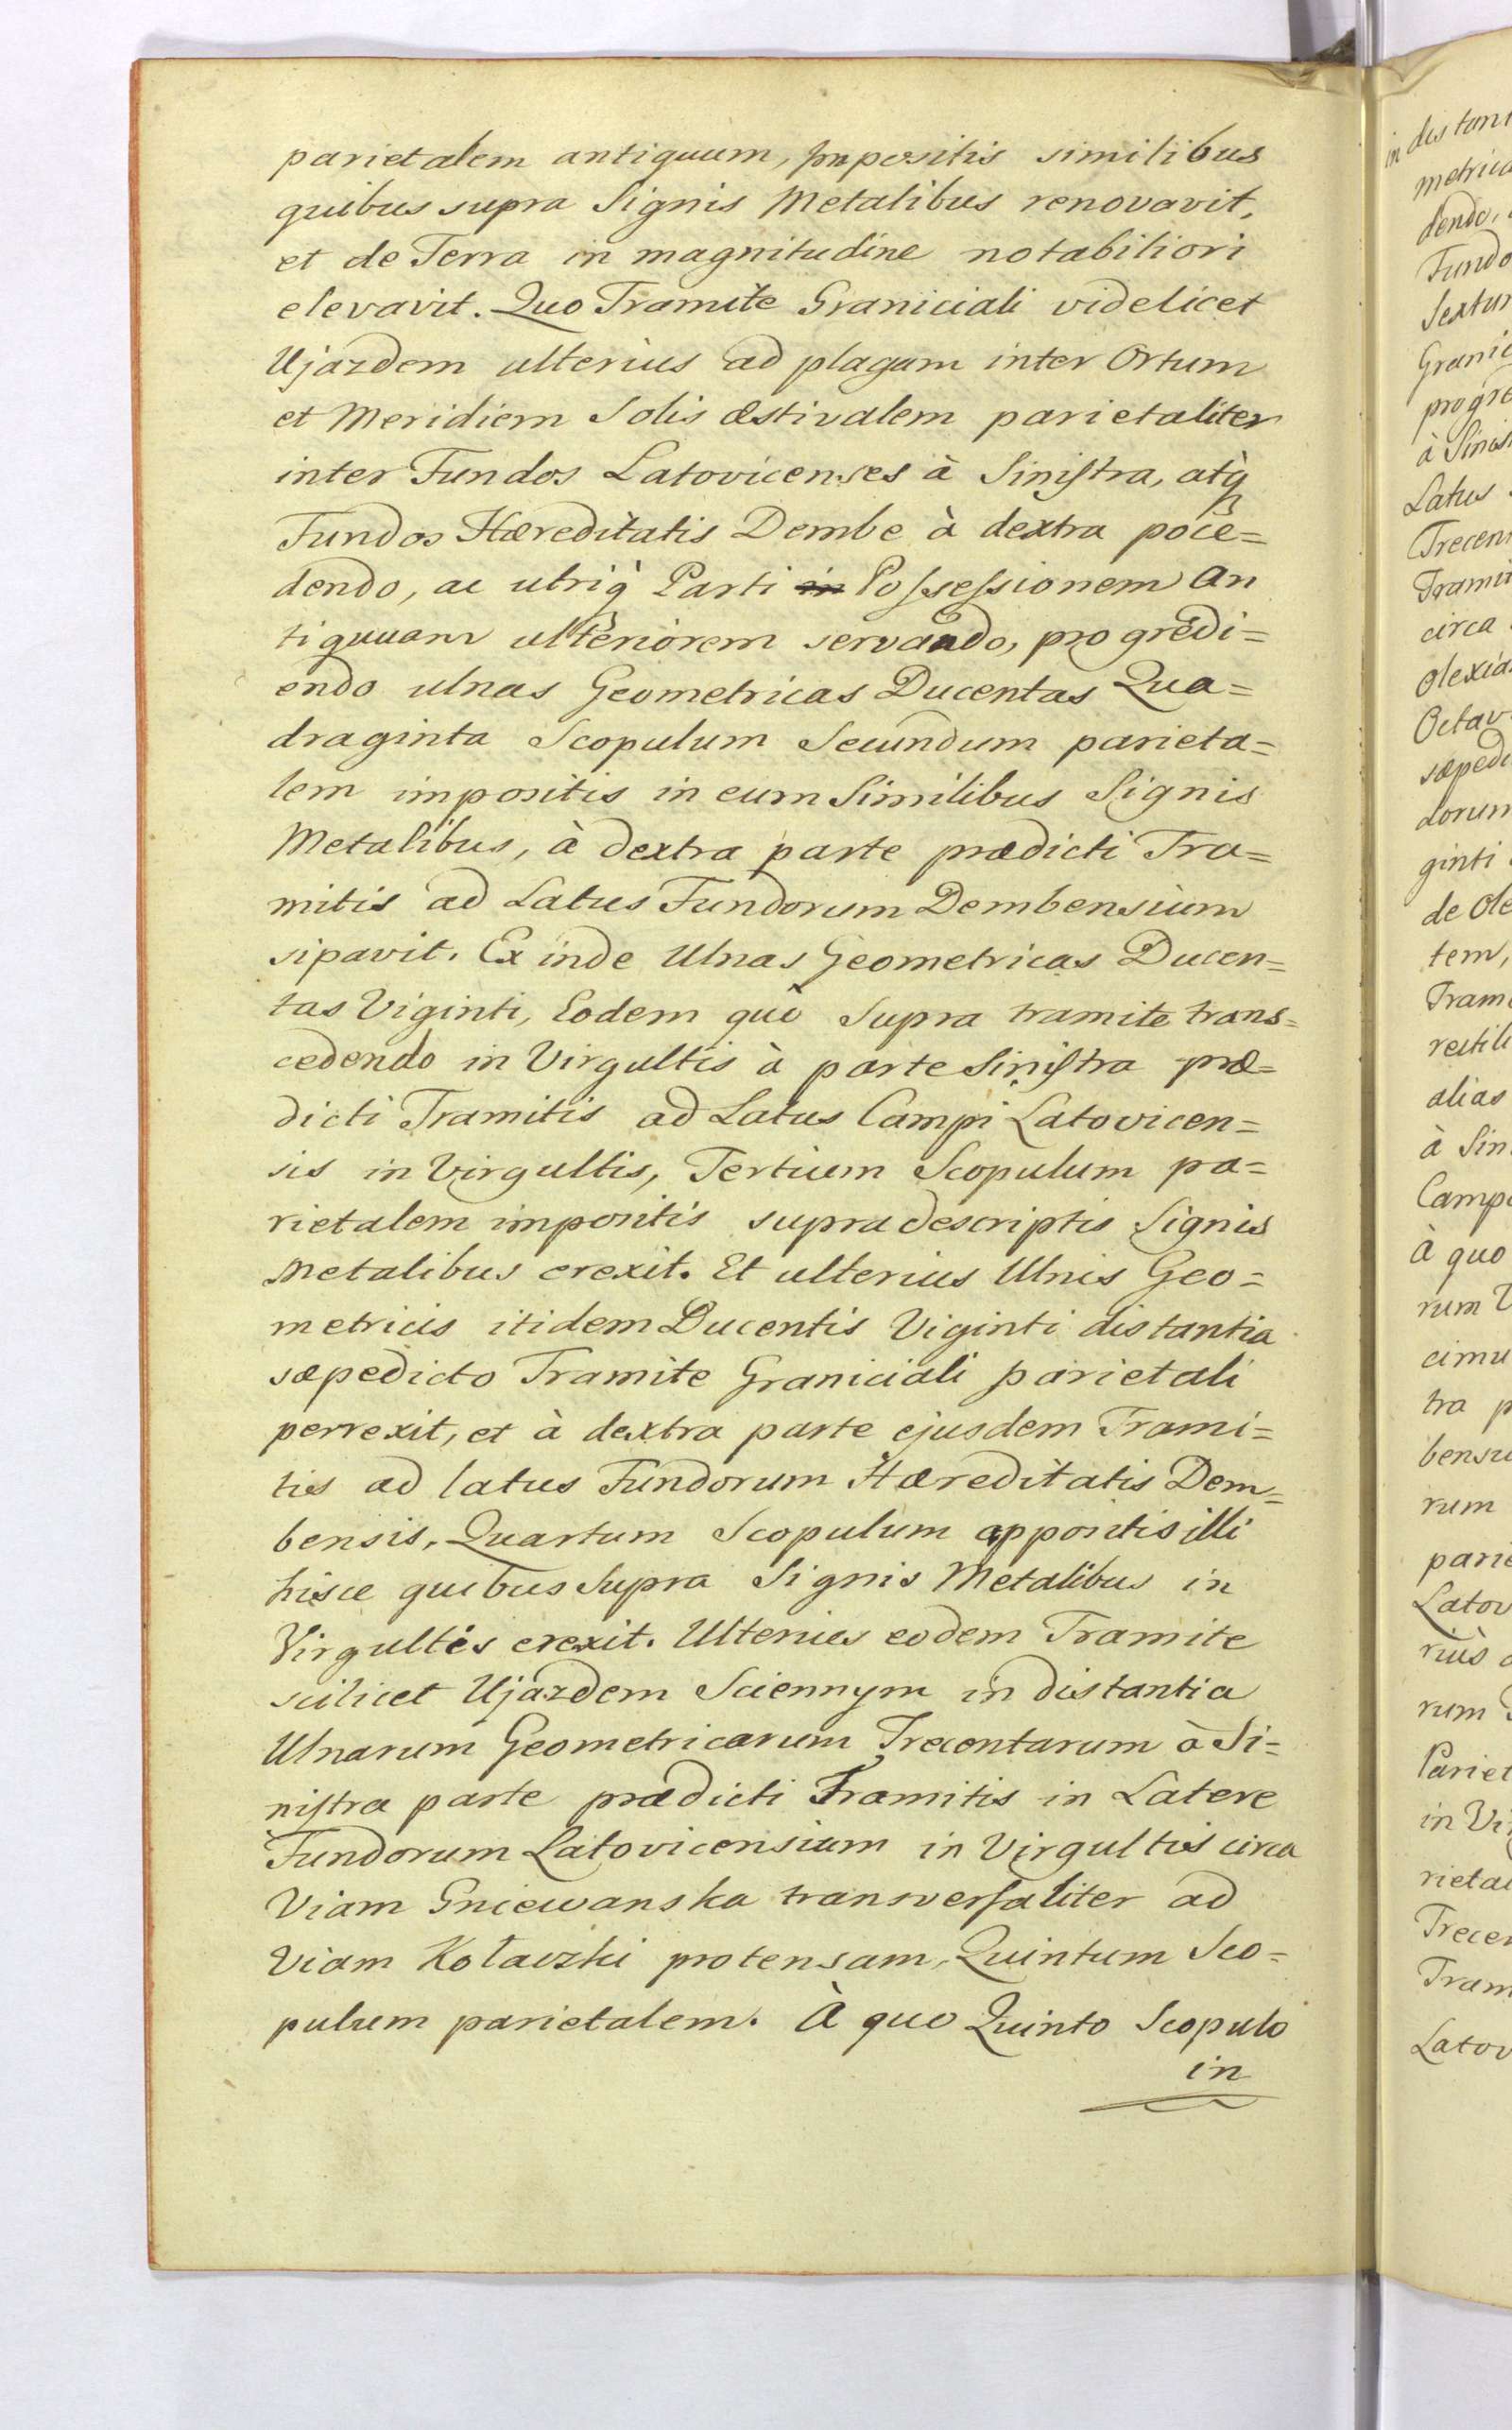 parietalem antiquum, impositis similibus
quibus supra Signis Metalibus renovavit,
et de Terra in magnitudine notabiliori
elevavit. Quo Tramite Graniciali videlicet
Ujazdem ulterius ad plagam inter Ortum
et Meridiem Solis æstivalem parietaliter
inter Fundos Latovicenses à Siniſtra, atq́
Fundos Hæreditatis Dembe à dextra poce=
dendo, ac utriq́ Parti in Poſseſsionem An
tiquuam ulteriorem servando, progredi=
endo ulnas Geometricas Ducentas Qua=
draginta Scopulum Secundum parieta=
lem impositis in eum Similibus Signis
Metalibus, à dextra parte prædicti Tra=
mitis ad Latus Fundorum Dembensium
sipavit. Ex inde Ulnas Geometricas Ducen=
tas Viginti, Eodem quo Supra tramite trans=
cedendo in Virgultis à parte Siniſtra præ=
dicti Tramitis ad Latus Campi Latovicen=
sis in Virgultis, Tertium Scopulum pa=
rietalem impositis supradescriptis Signis
Metalibus erexit. Et ulterius Ulnis Geo=
metricis itidem Ducentis Viginti distantia
sæpedicto Tramite Graniciali parietali
perrexit, et à dextra parte ejusdem Trami=
tis ad latus Fundorum Hæreditatis Dem=
bensis, Quartum Scopulum appositis illi
hisce quibus Supra Signis Metalibus in
Virgultis erexit. Ulterius eodem Tramite
scilicet Ujazdem Sciennym in distantia
Ulnarum Geometricarum Trecentarum à Si=
niſtra parte prædicti Tramitis in Latere
Fundorum Latovicensium in Virgultis circa
Viam Gniewanska transverſaliter ad
Viam Kołaczki protensam, Quintum Sco=
pulum parietalem. À quo Quinto Scopulo
in
in distan
metrica
dendo,
Fundo
Sextum
Granic
progre
à Sinis
Latus
Trecen
Trami
circa
Olexia
Octav
sæpedi
dorum
ginti
de Ole
tem,
Tram
rectili
alias
à Sin
Camp
à quo
rum V
cimu
tra p
bensiu
rum
parie
Latov
riùs
rum
Pariet
in Vi
rietal
Trecen
Tram
Latov